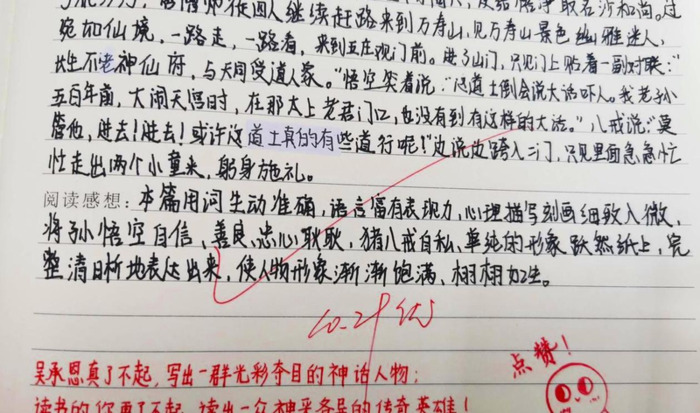 唐僧师徒四人继续赶路来到万寿山，见万寿山景色幽雅迷人，
宛如仙境，一路走，一路看，来到五庄观门前。进了山门，只见门上贴着一副对联："长
生不老神仙府，与天同受道人家。"悟空笑着说："这道士倒会说大话吓人。我老孙
五百年前，大闹天宫时，在那太上老君门口，也没有到有这样的大话。"八戒说："莫
管他，进去！进去！或许这道士真的有些道行呢！"边说边跨入二门，只见里面急急忙
忙走出两个小童来，躬身施礼。
阅读感想：本篇用词生动准确，语言富有表现力，心理描写刻画细致入微，
将孙悟空自信、善良、忠心耿耿，猪八戒自私、单纯的形象跃然纸上，完
整清晰地表达出来，使人物形象渐渐饱满、栩栩如生。
10.29 优
点赞！
吴承恩真了不起，写出一群光彩夺目的神话人物；
读书的你更了不起，读出一众神采各异的传奇英雄！